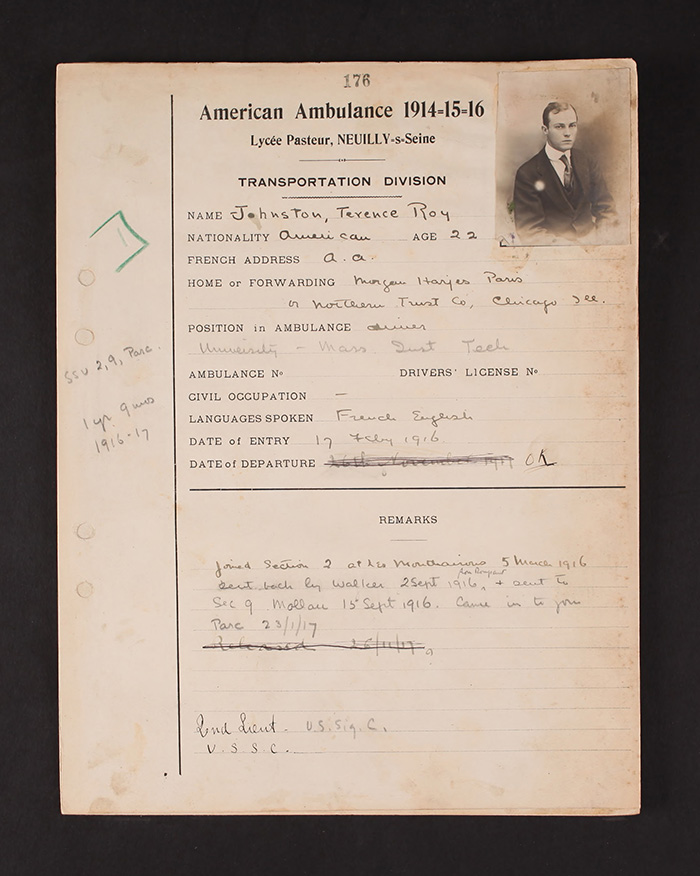 176
American Ambulance 1914-15-16
Lycée Pasteur, NEUILLY-s-Seine
TRANSPORTATION DIVISION
NAME Johnston, Terence Roy
NATIONALITY American AGE 22
FRENCH ADDRESS A.A.
HOME or FORWARDING Morgan Harjes Paris
or Northern Trust Co, Chicago Ill.
POSITION in AMBULANCE driver
University - Mass. Inst Tech
AMBULANCE No DRIVERS' LICENSE No
CIVIL OCCUPATION —
LANGUAGES SPOKEN French English
DATE of ENTRY 17 Feby 1916.
DATE of DEPARTURE 26th November 1917 OK
1
SSU 2, 9, Parc.
1 yr. 9 mos
1916-17
REMARKS
Joined Section 2 at Les Monthairons 5 March 1916
sent back by Walker 2 Sept 1916, + sent to
Sec 9 Mollau 15 Sept 1916. Came in to join
Parc 23/1/17
Released 26/11/17
2nd Lieut - U.S. Sig. C.
U.S.S.C.